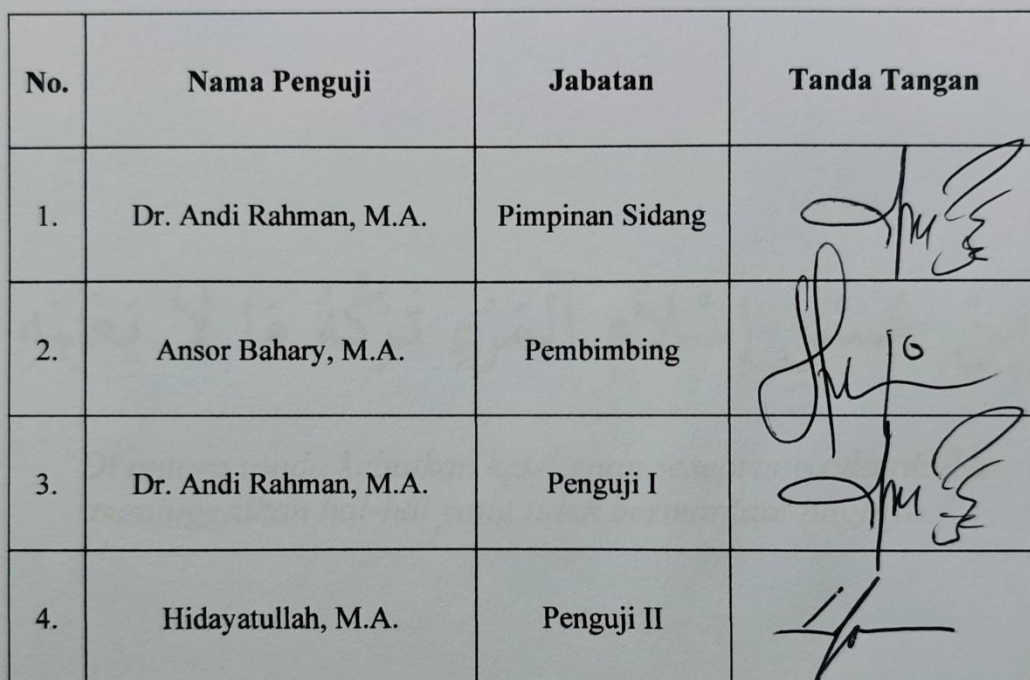 No. Nama Penguji Jabatan Tanda Tangan
1. Dr. Andi Rahman, M.A. Pimpinan Sidang
2. Ansor Bahary, M.A. Pembimbing
3. Dr. Andi Rahman, M.A. Penguji I
4. Hidayatullah, M.A. Penguji II